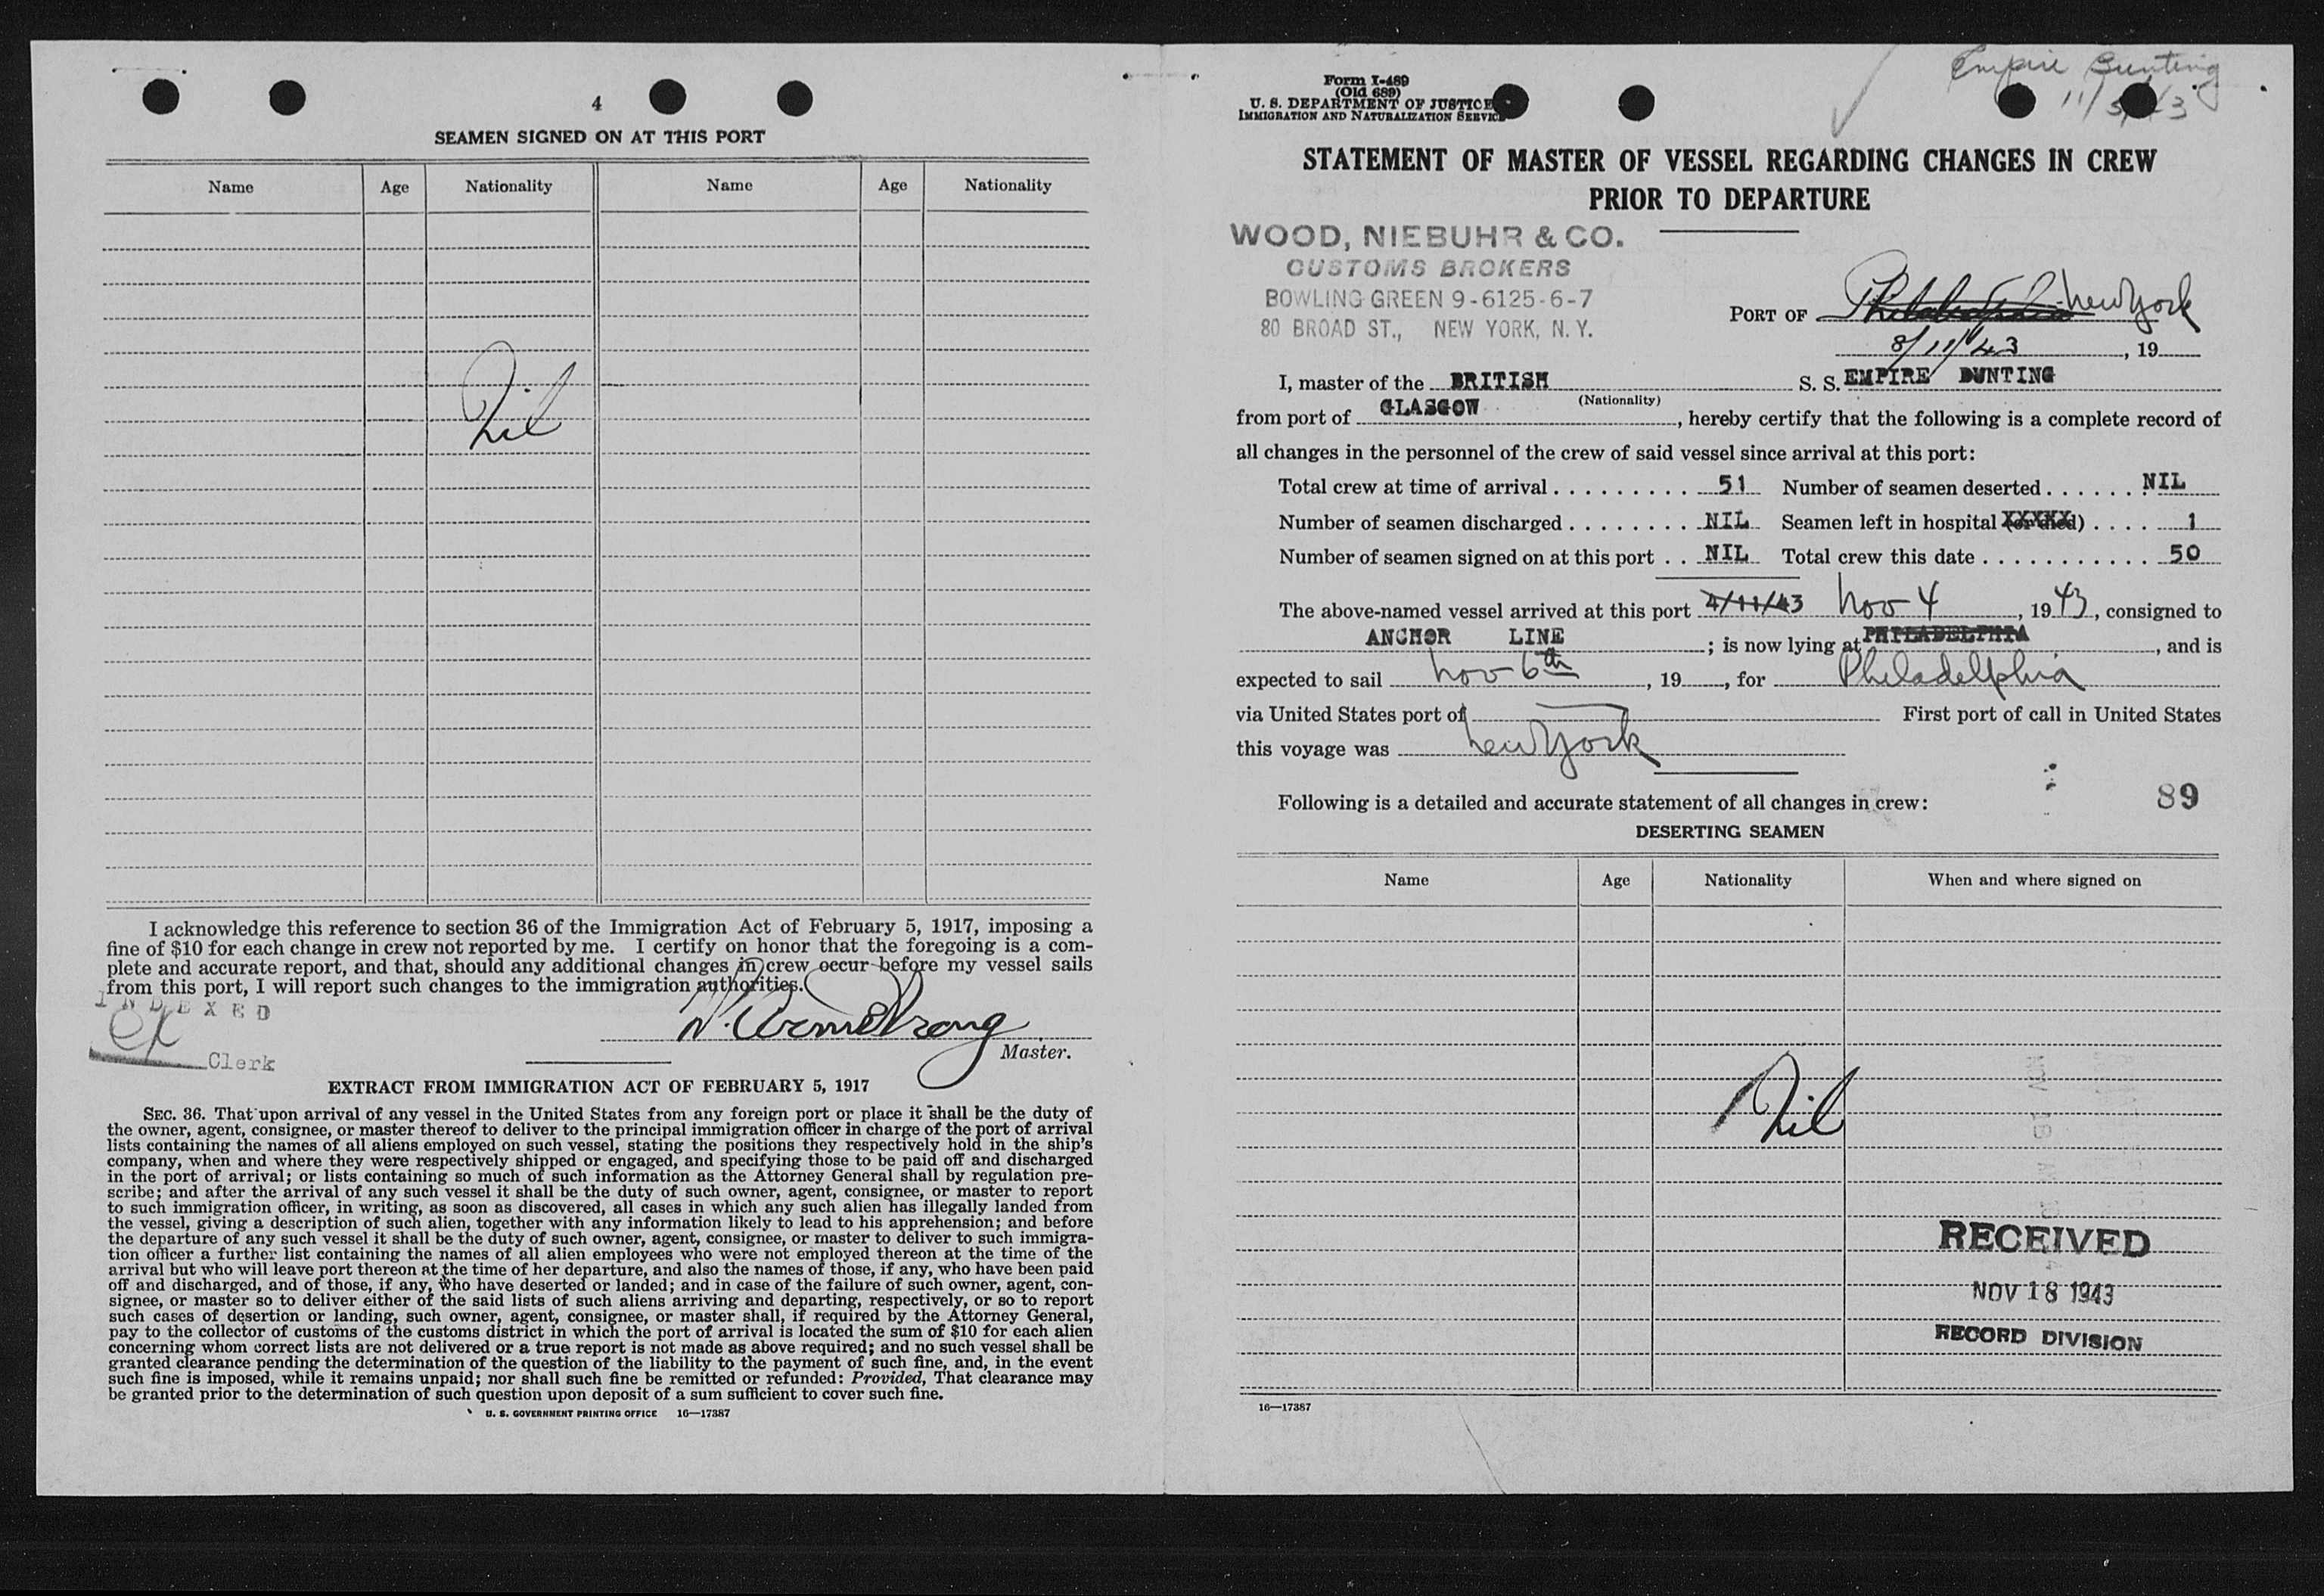 4
SEAMEN SIGNED ON AT THIS PORT
Name Age Nationality Name Age Nationality
Nil
I acknowledge this reference to section 36 of the Immigration Act of February 5, 1917, imposing a
fine of $10 for each change in crew not reported by me. I certify on honor that the foregoing is a com-
plete and accurate report, and that, should any additional changes in crew occur before my vessel sails
from this port, I will report such changes to the immigration authorities.
INDEXED
Clerk
N. Armstrong
Master.
EXTRACT FROM IMMIGRATION ACT OF FEBRUARY 5, 1917
SEC. 36. That upon arrival of any vessel in the United States from any foreign port or place it shall be the duty of
the owner, agent, consignee, or master thereof to deliver to the principal immigration officer in charge of the port of arrival
lists containing the names of all aliens employed on such vessel, stating the positions they respectively hold in the ship's
company, when and where they were respectively shipped or engaged, and specifying those to be paid off and discharged
in the port of arrival; or lists containing so much of such information as the Attorney General shall by regulation pre-
scribe; and after the arrival of any such vessel it shall be the duty of such owner, agent, consignee, or master to report
to such immigration officer, in writing, as soon as discovered, all cases in which any such alien has illegally landed from
the vessel, giving a description of such alien, together with any information likely to lead to his apprehension; and before
the departure of any such vessel it shall be the duty of such owner, agent, consignee, or master to deliver to such immigra-
tion officer a further list containing the names of all alien employees who were not employed thereon at the time of the
arrival but who will leave port thereon at the time of her departure, and also the names of those, if any, who have been paid
off and discharged, and of those, if any, who have deserted or landed; and in case of the failure of such owner, agent, con-
signee, or master so to deliver either of the said lists of such aliens arriving and departing, respectively, or so to report
such cases of desertion or landing, such owner, agent, consignee, or master shall, if required by the Attorney General,
pay to the collector of customs of the customs district in which the port of arrival is located the sum of $10 for each alien
concerning whom correct lists are not delivered or a true report is not made as above required; and no such vessel shall be
granted clearance pending the determination of the question of the liability to the payment of such fine, and, in the event
such fine is imposed, while it remains unpaid; nor shall such fine be remitted or refunded: Provided, That clearance may
be granted prior to the determination of such question upon deposit of a sum sufficient to cover such fine.
U. S. GOVERNMENT PRINTING OFFICE 16—17387
Form I-489
(Old 689)
U. S. DEPARTMENT OF JUSTICE
IMMIGRATION AND NATURALIZATION SERVICE
Empire Bunting
STATEMENT OF MASTER OF VESSEL REGARDING CHANGES IN CREW
PRIOR TO DEPARTURE
WOOD, NIEBUHR & CO.
CUSTOMS BROKERS
BOWLING GREEN 9-6125-6-7
80 BROAD ST., NEW YORK, N. Y.
PORT OF Philadelphia New York
8/11/43, 19
I, master of the BRITISH S. S. EMPIRE BUNTING
(Nationality)
from port of GLASGOW, hereby certify that the following is a complete record of
all changes in the personnel of the crew of said vessel since arrival at this port:
Total crew at time of arrival . . . . . . . . . 51 Number of seamen deserted . . . . . . NIL
Number of seamen discharged . . . . . . . . NIL Seamen left in hospital (or died) . . . . 1
Number of seamen signed on at this port . . NIL Total crew this date . . . . . . . . . . . 50
The above-named vessel arrived at this port 4/11/43 Nov 4, 1943, consigned to
ANCHOR LINE; is now lying at PHILADELPHIA, and is
expected to sail Nov 6th, 19, for Philadelphia
via United States port of — First port of call in United States
this voyage was New York
Following is a detailed and accurate statement of all changes in crew: 89
DESERTING SEAMEN
Name Age Nationality When and where signed on
Nil
RECEIVED
NOV 18 1943
RECORD DIVISION
16—17387